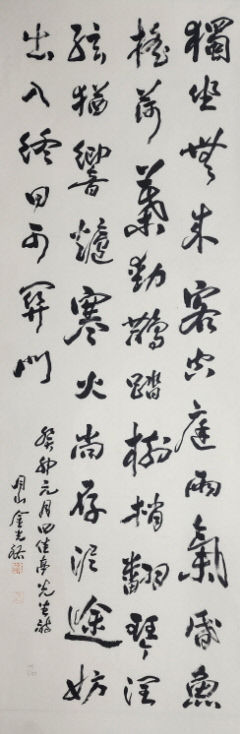 獨坐無來客空庭雨氣昏魚
搖荷葉動鵲踏樹梢翻琴潤
絃猶響爐寒火尚存泥途妨
出入終日可關門
癸卯元月四佳亭先生詩
明山金光